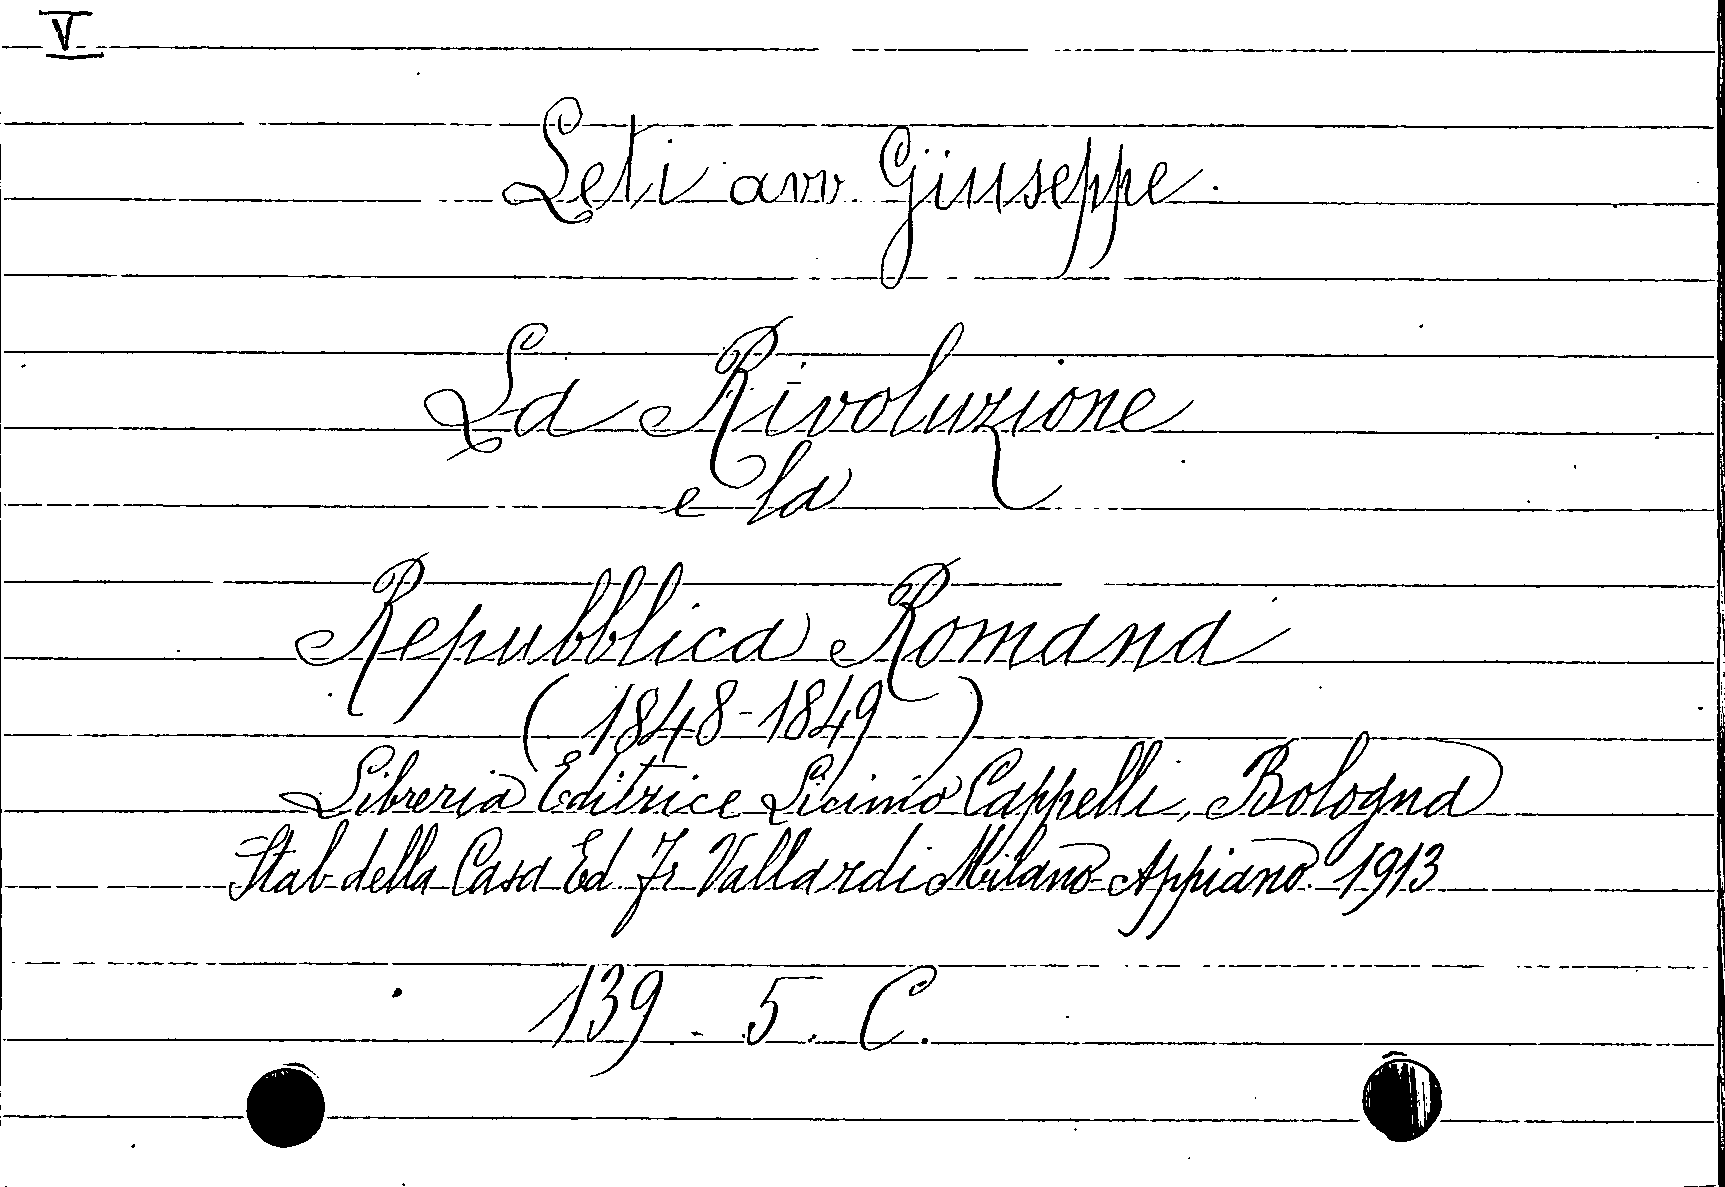 V
Leti avv. Giuseppe.
La Rivoluzione
e la
Repubblica Romana
(1848-1849)
Libreria Editrice Licinio Cappelli, Bologna
Stab della Casa Ed Fr Vallardi Milano Appiano 1913
139. 5. C.